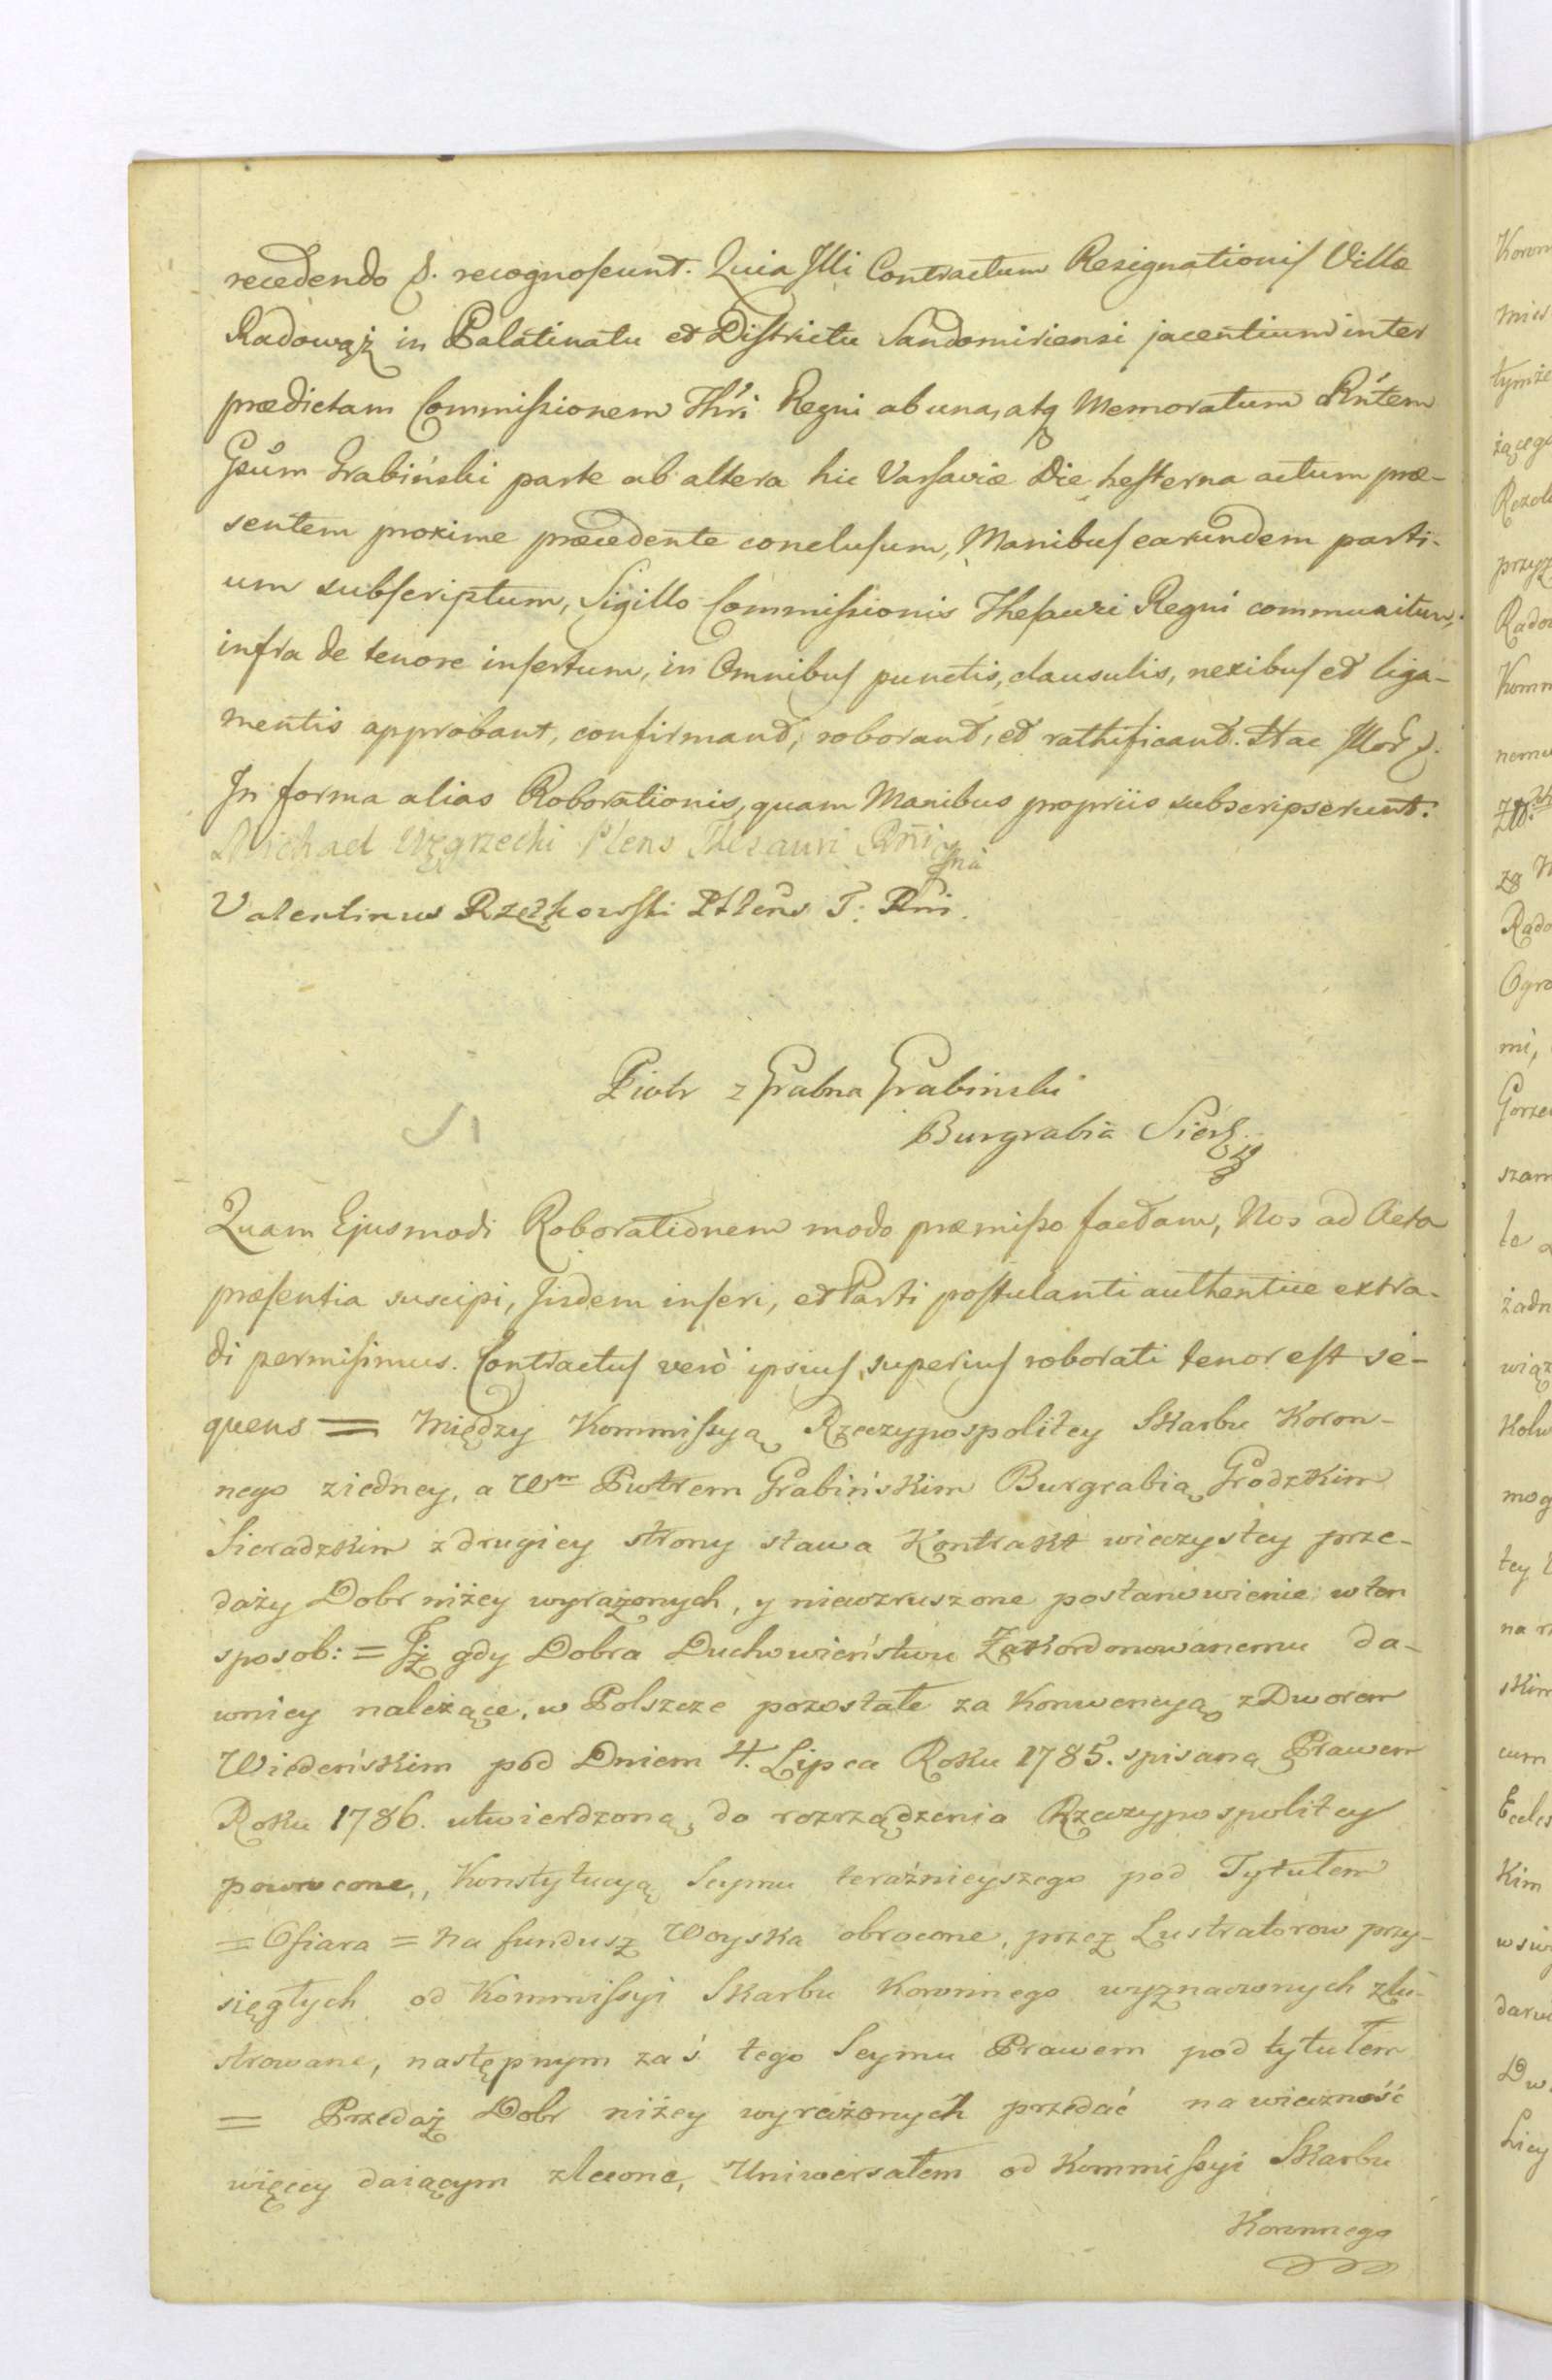 recedendo &. recognoscunt. Quia Illi Contractum Resignationis Villæ
Radowąż in Palatinatu et Districtu Sandomiriensi jacentium inter
prædictam Commissionem Thri Regni ab una, atq Memoratum Rntem
Gsum Grabiński parte ab altera hic Varsaviæ Die hesterna actum præ-
sentem proxime præcedente conclusum, Manibus earundem parti-
um subscriptum, Sigillo Commissionis Thesauri Regni communitum,
infra de tenore insertum, in Omnibus punctis, clausulis, nexibus et liga-
mentis approbant, confirmant, roborant, et rathificant. Hac
In forma alias Roborationis, quam Manibus propriis subscripserunt.
Michael Węgrzecki Plens Thesauri Rni
Valentinus Rzęczkowski Plens T. Rni.
Piotr z Grabna Grabinski
Burgrabia Sierdz
Quam Ejusmodi Roborationem modo præmisso factam, Nos ad Acta
præsentia suscipi, Iisdem inseri, et Parti postulanti authentice extra-
di permisimus. Contractus verò ipsius superius roborati tenor est se-
quens = Między Kommissyą Rzeczypospolitey Skarbu Koron-
nego ziedney, a Wm Piotrem Grabińskim Burgrabią Grodzkim
Sieradzkim z drugiey strony stawa Kontrakt wieczystey prze-
daży Dobr niżey wyrażonych, y niewzruszone postanowienie w ten
sposob: = Iż gdy Dobra Duchowieństwu Zakordonowanemu da-
wniey należące, w Polszcze pozostałe za Konwencyą z Dworem
Wiedeńskim pod Dniem 4. Lipca Roku 1785. spisaną Prawem
Roku 1786. utwierdzoną, do rozrządzenia Rzeczypospolitey
powrocone, Konstytucyą Seymu teraźnieyszego pod Tytułem
= Ofiara = na fundusz Woyska obrocone, przez Lustratorow przy-
sięgłych od Kommissyi Skarbu Koronnego wyznaczonych zlu-
strowane, następnym zaś tego Seymu Prawem pod tytułem
= Przedaż Dobr niżey wyrażonych przedać na wieczność
więcey daiącym zlecone, Uniwersałem od Kommissyi Skarbu
Koronnego